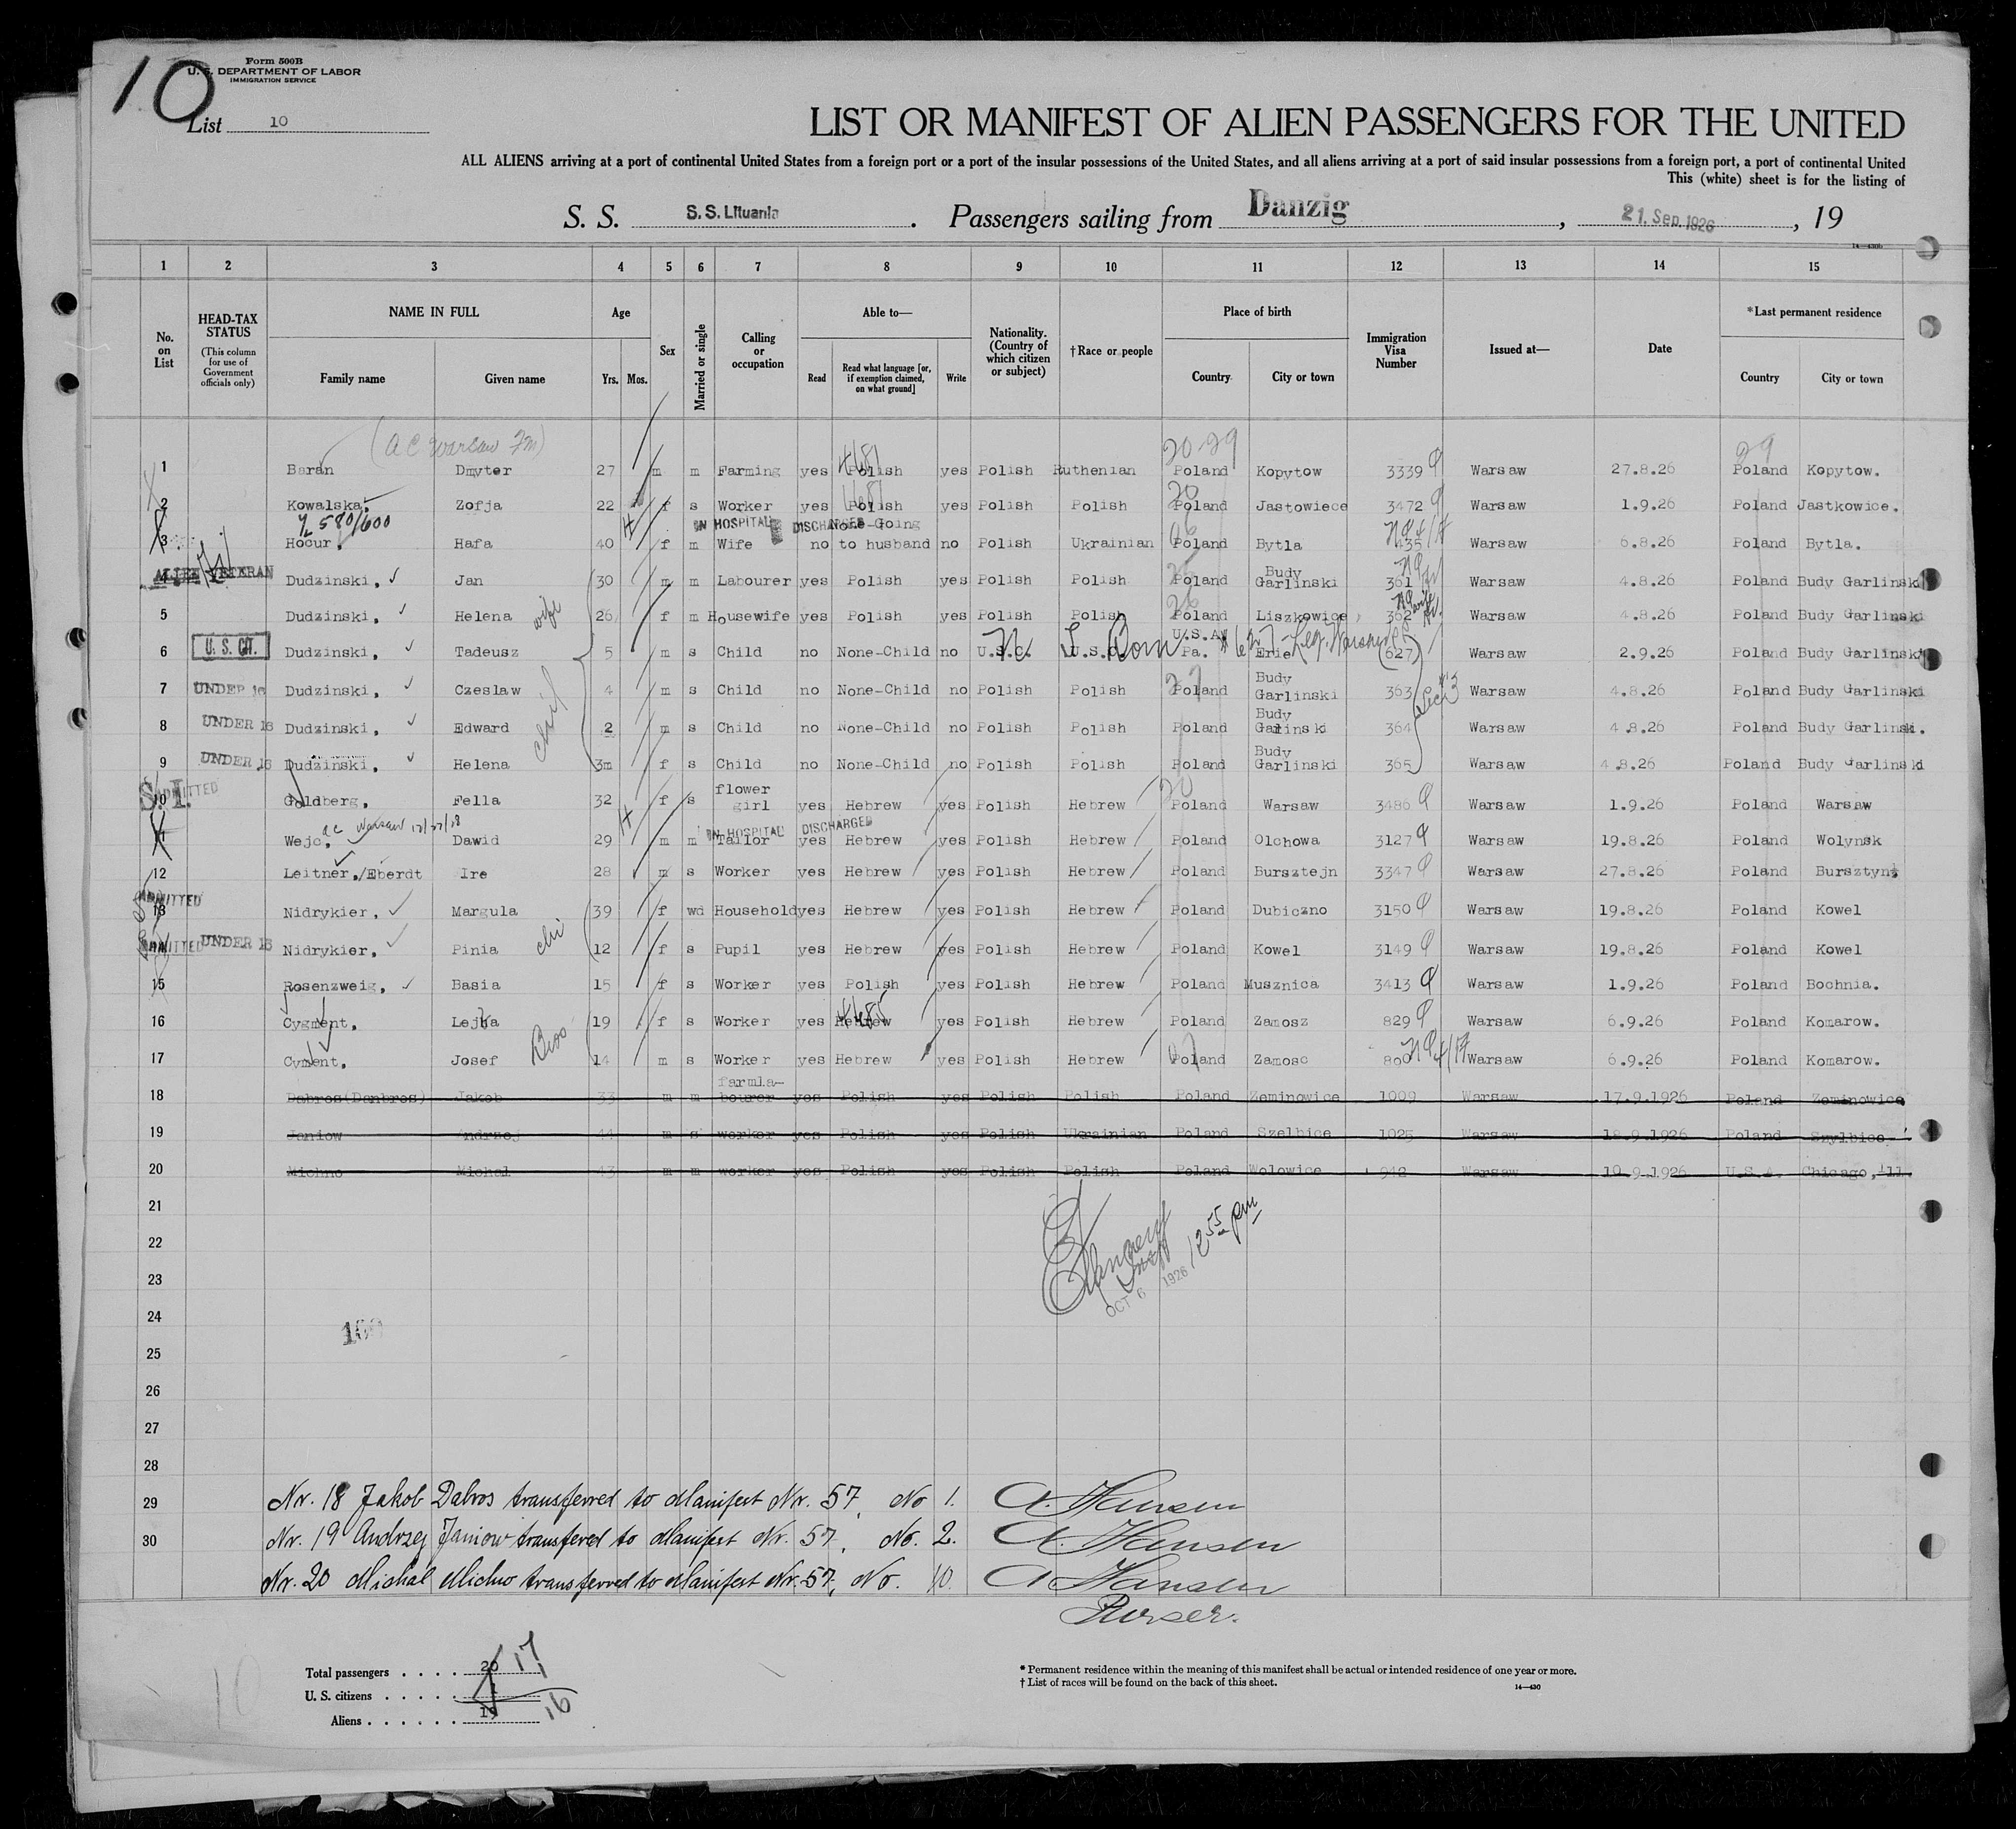 10
Form 500B
U. S. DEPARTMENT OF LABOR
IMMIGRATION SERVICE
List 10
LIST OR MANIFEST OF ALIEN PASSENGERS FOR THE UNITED
ALL ALIENS arriving at a port of continental United States from a foreign port or a port of the insular possessions of the United States, and all aliens arriving at a port of said insular possessions from a foreign port, a port of continental United
This (white) sheet is for the listing of
S. S. S. S. Lituania. Passengers sailing from Danzig, 21. Sep. 1926, 19
1 2 3 4 5 6 7 8 9 10 11 12 13 14 15
No. on List
HEAD-TAX STATUS (This column for use of Government officials only)
NAME IN FULL Family name Given name
Age Yrs. Mos.
Sex
Married or single
Calling or occupation
Able to— Read Read what language [or, if exemption claimed, on what ground] Write
Nationality. (Country of which citizen or subject)
†Race or people
Place of birth Country City or town
Immigration Visa Number
Issued at—
Date
*Last permanent residence Country City or town
(AC Warsaw 20-29 29
1 Baran Dmyter 27 m m Farming yes Polish yes Polish Ruthenian Poland Kopytow 3339 Warsaw 27.8.26 Poland Kopytow.
2 Kowalska, Zofja 22 f s Worker yes Polish yes Polish Polish Poland Jastowiece 3472 Warsaw 1.9.26 Poland Jastkowice.
580/600 IN HOSPITAL DISCHARGED None-Going
3 Hocur, Hafa 40 f m Wife no to husband no Polish Ukrainian Poland Bytla 435 Warsaw 6.8.26 Poland Bytla.
ALIEN VETERAN
4 Dudzinski, Jan 30 m m Labourer yes Polish yes Polish Polish Poland Budy Garlinski 361 Warsaw 4.8.26 Poland Budy Garlinski
5 Dudzinski, Helena wife 26 f m Housewife yes Polish yes Polish Polish Poland Liszkowice 362 Warsaw 4.8.26 Poland Budy Garlinski
6 U. S. CIT. Dudzinski, Tadeusz 5 m s Child no None-Child no U.S.C. U.S.C. Born U.S.A. Pa. Erie 627 Warsaw 2.9.26 Poland Budy Garlinski
7 UNDER 16 Dudzinski, Czeslaw 4 m s Child no None-Child no Polish Polish Poland Budy Garlinski 363 Warsaw 4.8.26 Poland Budy Garlinski
8 UNDER 16 Dudzinski, Edward 2 m s Child no None-Child no Polish Polish Poland Budy Garlinski 364 Warsaw 4.8.26 Poland Budy Garlinski.
9 UNDER 16 Dudzinski, Helena 3m f s Child no None-Child no Polish Polish Poland Budy Garlinski 365 Warsaw 4.8.26 Poland Budy Garlinski
S.I. ADMITTED
10 Goldberg, Fella 32 f s flower girl yes Hebrew yes Polish Hebrew Poland Warsaw 3486 Warsaw 1.9.26 Poland Warsaw
IN HOSPITAL DISCHARGED
11 Wejc, Dawid 29 m m Tailor yes Hebrew yes Polish Hebrew Poland Olchowa 3127 Warsaw 19.8.26 Poland Wolynsk
12 Leitner,/Eberdt Ire 28 m s Worker yes Hebrew yes Polish Hebrew Poland Bursztejn 3347 Warsaw 27.8.26 Poland Bursztyn
ADMITTED
13 Nidrykier, Margula 39 f wd Household yes Hebrew yes Polish Hebrew Poland Dubiczno 3150 Warsaw 19.8.26 Poland Kowel
ADMITTED UNDER 16 Nidrykier, Pinia 12 f s Pupil yes Hebrew yes Polish Hebrew Poland Kowel 3149 Warsaw 19.8.26 Poland Kowel
15 Rosenzweig, Basia 15 f s Worker yes Polish yes Polish Hebrew Poland Musznica 3413 Warsaw 1.9.26 Poland Bochnia.
16 Cygment, Lejba 19 f s Worker yes Hebrew yes Polish Hebrew Poland Zamosz 829 Warsaw 6.9.26 Poland Komarow.
17 Cyment, Josef 14 m s Worker yes Hebrew yes Polish Hebrew Poland Zamosc 800 Warsaw 6.9.26 Poland Komarow.
18 Dabros(Danbros) Jakob 33 m m farmla-bourer yes Polish yes Polish Polish Poland Zeminowice 1009 Warsaw 17.9.1926 Poland Zeminowice
19 Janiow Andrzej 44 m s worker yes Polish yes Polish Ukrainian Poland Szelbice 1025 Warsaw 18.9.1926 Poland
20 Michno Michal 43 m m worker yes Polish yes Polish Polish Poland Wolowice 942 Warsaw 10.9.1926 U.S.A. Chicago, Ill.
21
22
23
OCT 6 1926 12 55 pm
24
25
26
27
28
29 Nr. 18 Jakob Dabros transferred to Manifest Nr. 57, No 1. A. Hansen
30 Nr. 19 Andrzej Janiow transfered to Manifest Nr. 57, No. 2. A. Hansen
Nr. 20 Michal Michno transferred to Manifest Nr. 57, No. 10. A Hansen
Purser.
Total passengers . . . . 20 17
U. S. citizens . . . . . 1
Aliens . . . . . . 19 16
* Permanent residence within the meaning of this manifest shall be actual or intended residence of one year or more.
† List of races will be found on the back of this sheet.
14—430